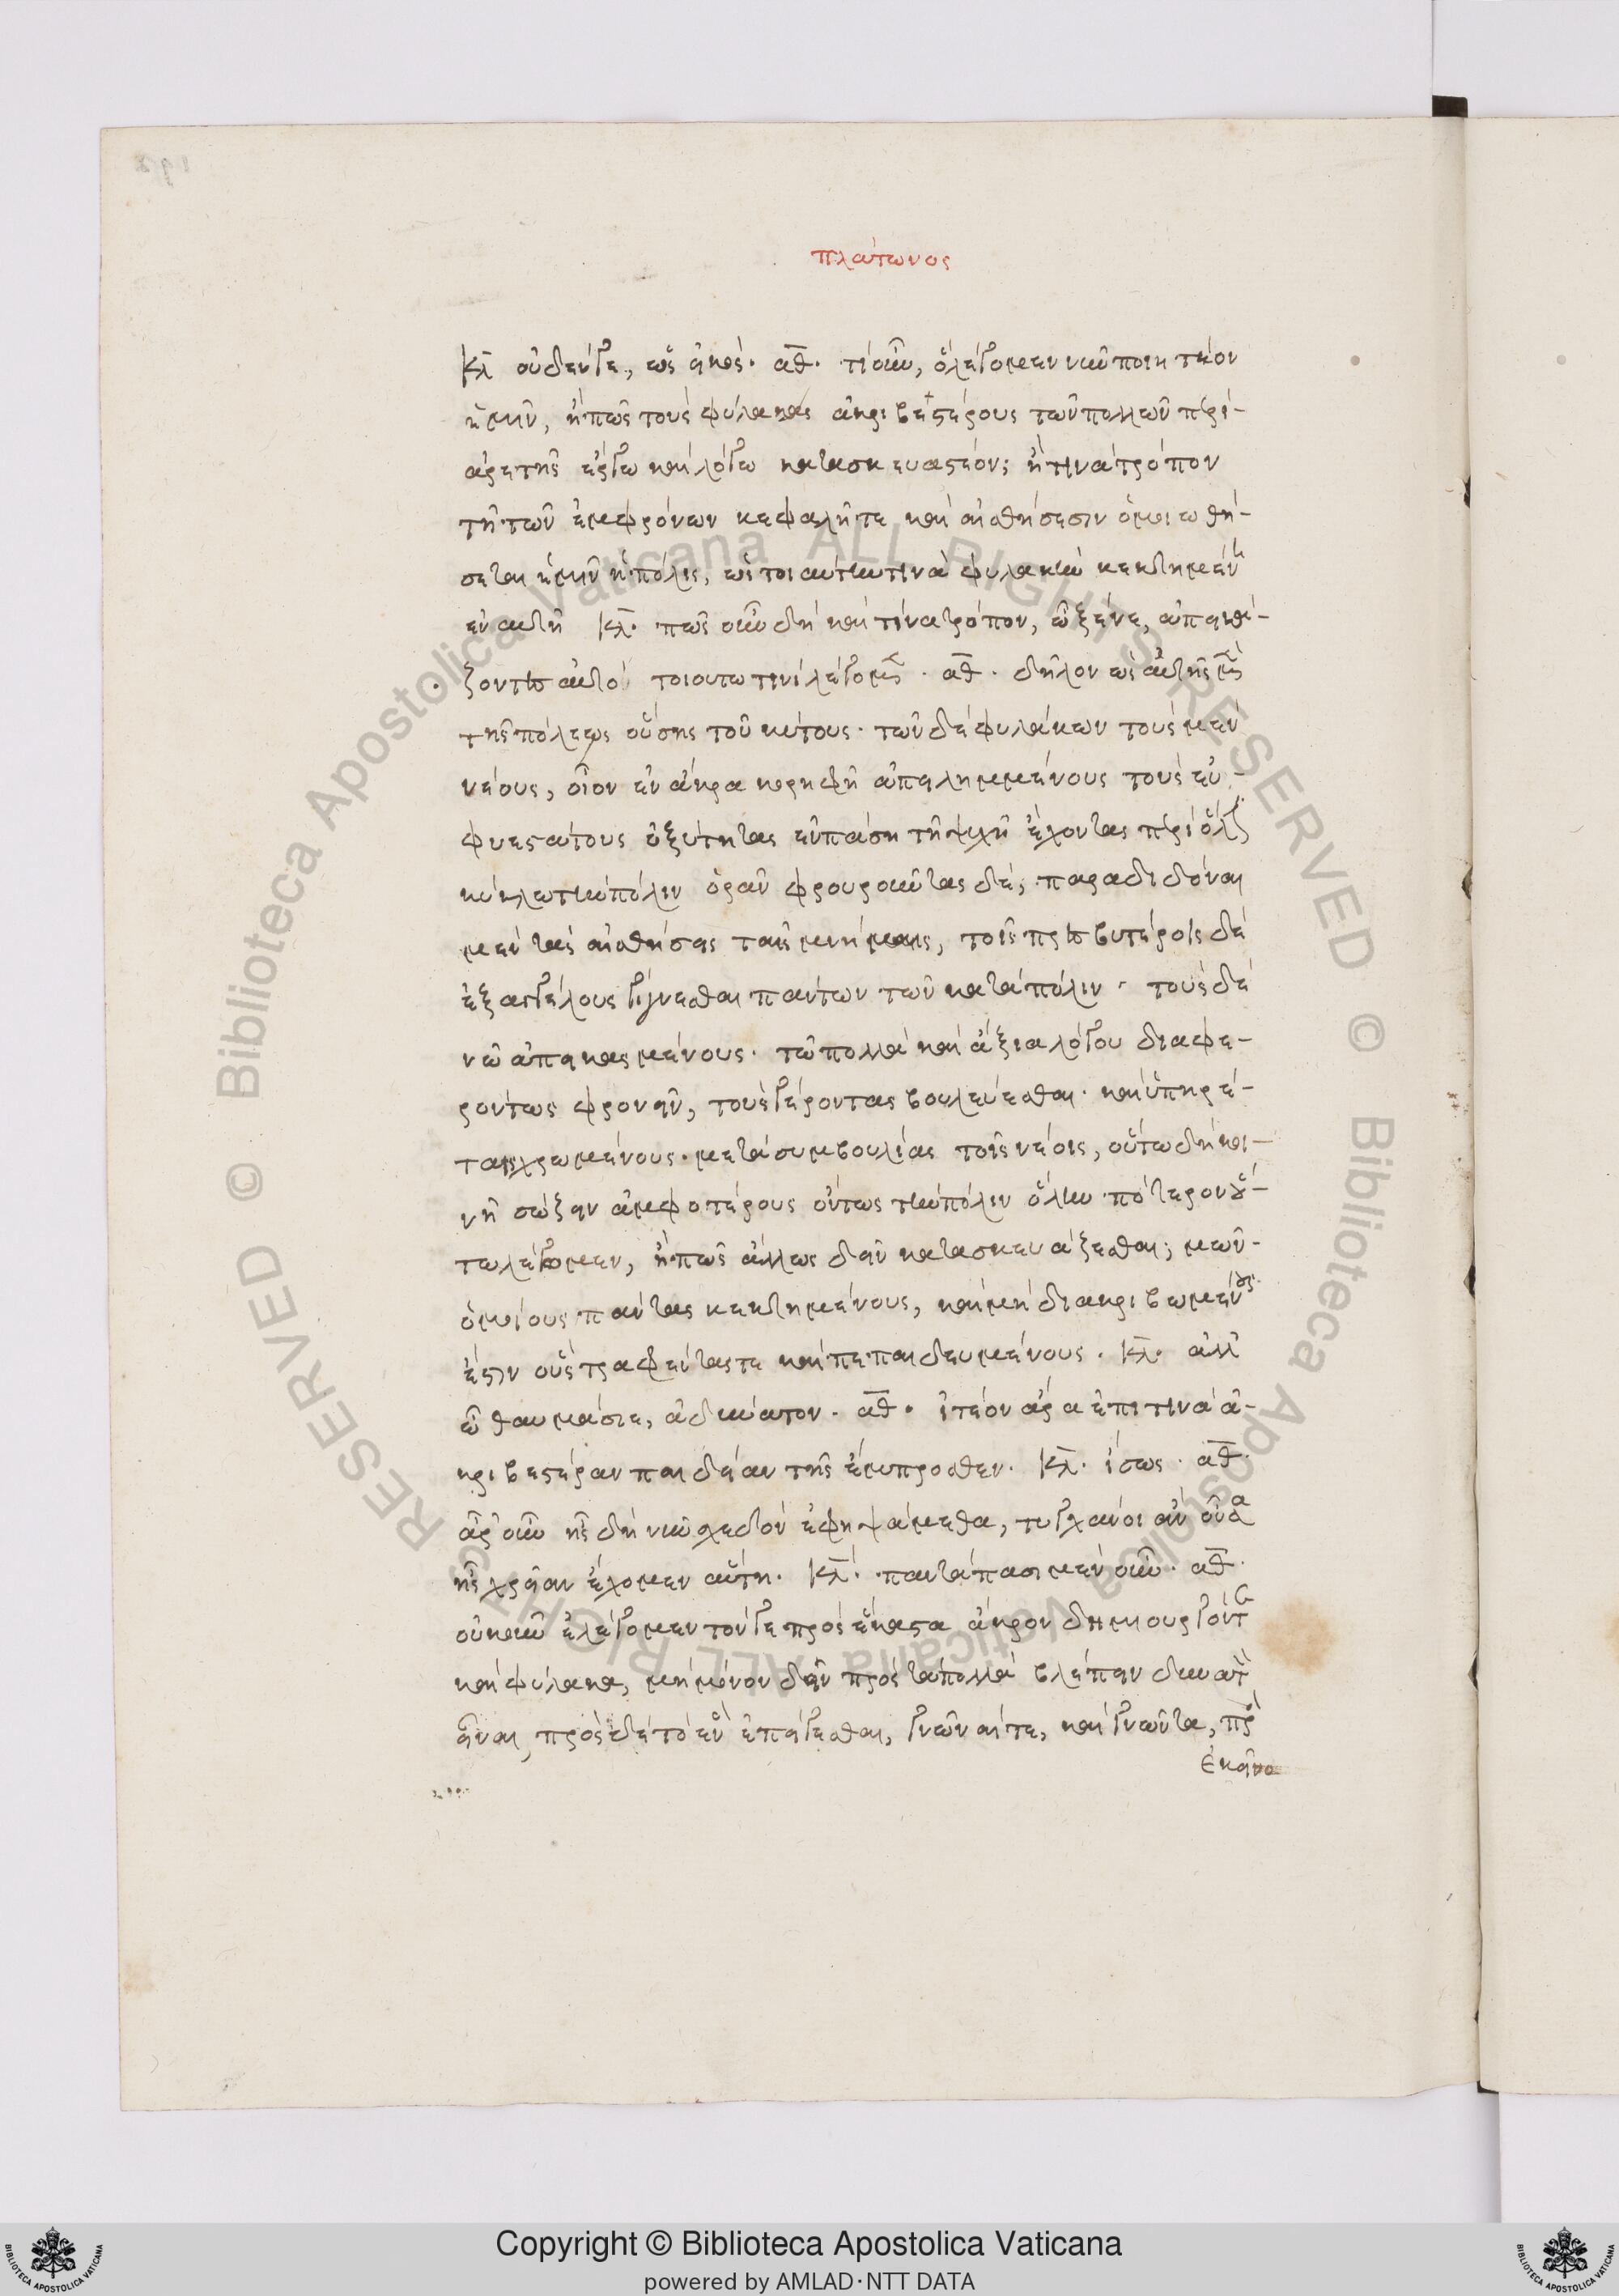 πλάτωνος
κλ οὐδέν γε, ὡς εἰκός. αθ. τί οὖν, ὃ λέγομεν νῦν ποιητέον
ἡμῖν, ἢ πῶς τοὺς φύλακας ἀκριβεστέρους τῶν πολλῶν περὶ-
ἀρετῆς ἔργω καὶ λόγω κατασκευαστέον; ἢ τίνα τρόπον
τῆ τῶν ἐμφρόνων κεφαλῆ τε καὶ αἰσθήσεσιν ὁμοιωθή-
σεται ἡμῖν ἡ πόλις, ὡς τοιαύτην τινὰ φυλακὴν κεκτημένη
ἐν αὑτῆ κλ. πῶς οὖν δὴ καὶ τίνα τρόπον, ὦ ξένε, ἀπεικά-
ζοντες αὐτὸ τοιούτω τινὶ λέγομεν. αθ. δῆλον ὡς αὐτῆς μὲν
τῆς πόλεως οὔσης τοῦ κύτους. τῶν δὲ φυλάκων τοὺς μὲν
νέους, οἷον ἐν ἄκρα κορυφῆ ἀπειλημμένους τοὺς εὐ-
φυεστάτους ὀξύτητας ἐν πάση τῆ ψυχῆ ἔχοντας περὶ ὅλην
κύκλω τὴν πόλιν ὁρᾶν φρουροῦντας δὲ, παραδιδόναι
μὲν τὰς αἰσθήσεις ταῖς μνήμαις, τοῖς πρεσβυτέροις δὲ
ἐξαγγέλους γίγνεσθαι πάντων τῶν κατὰ πόλιν. τοὺς δὲ
νῶ ἀπεικασμένους. τῶ πολλὰ καὶ ἄξια λόγου διαφε-
ρόντως φρονεῖν, τοὺς γέροντας βουλεύεσθαι. καὶ ὑπηρέ-
ταις χρωμένους. μετὰ συμβουλίας τοῖς νέοις, οὕτω δὴ κοι-
νῆ σώζειν ἀμφοτέρους ὄντως τὴν πόλιν ὅλην πότερον οὕ-
τω λέγομεν, ἢ πῶς ἄλλως δεῖν κατασκευάζεσθαι; μῶν-
ὁμοίους πάντας κεκτημένους, καὶ μὴ διηκριβωμένως
ἔστιν οὓς τραφέντας τε καὶ πεπαιδευμένους. κλ. ἀλλ'
ὦ θαυμάσιε, ἀδύνατον. αθ. ἰτέον ἄρα ἐπί τινα ἀ-
κριβεστέραν παιδείαν τῆς ἔμπροσθεν. κλ. ἴσως. αθ.
ἆρ' οὖν ἧς δὴ νῦν σχεδὸν ἐφηψάμεθα, τυγχάνοι ἂν οὖσα
ἧς χρείαν ἔχομεν αὕτη. κλ. παντάπασι μὲν οὖν. αθ.
οὐκοῦν ἐλέγομεν τόν γε πρὸς ἕκαστα ἄκρον δημιουργόν τε
καὶ φύλακα, μὴ μόνον δεῖν πρὸς τὰ πολλὰ βλέπειν δυνατὸν
εἶναι, πρὸς δὲ τὸ ἓν ἐπείγεσθαι, γνῶναί τε, καὶ γνῶντα, πρὸς
ἐκεῖνο